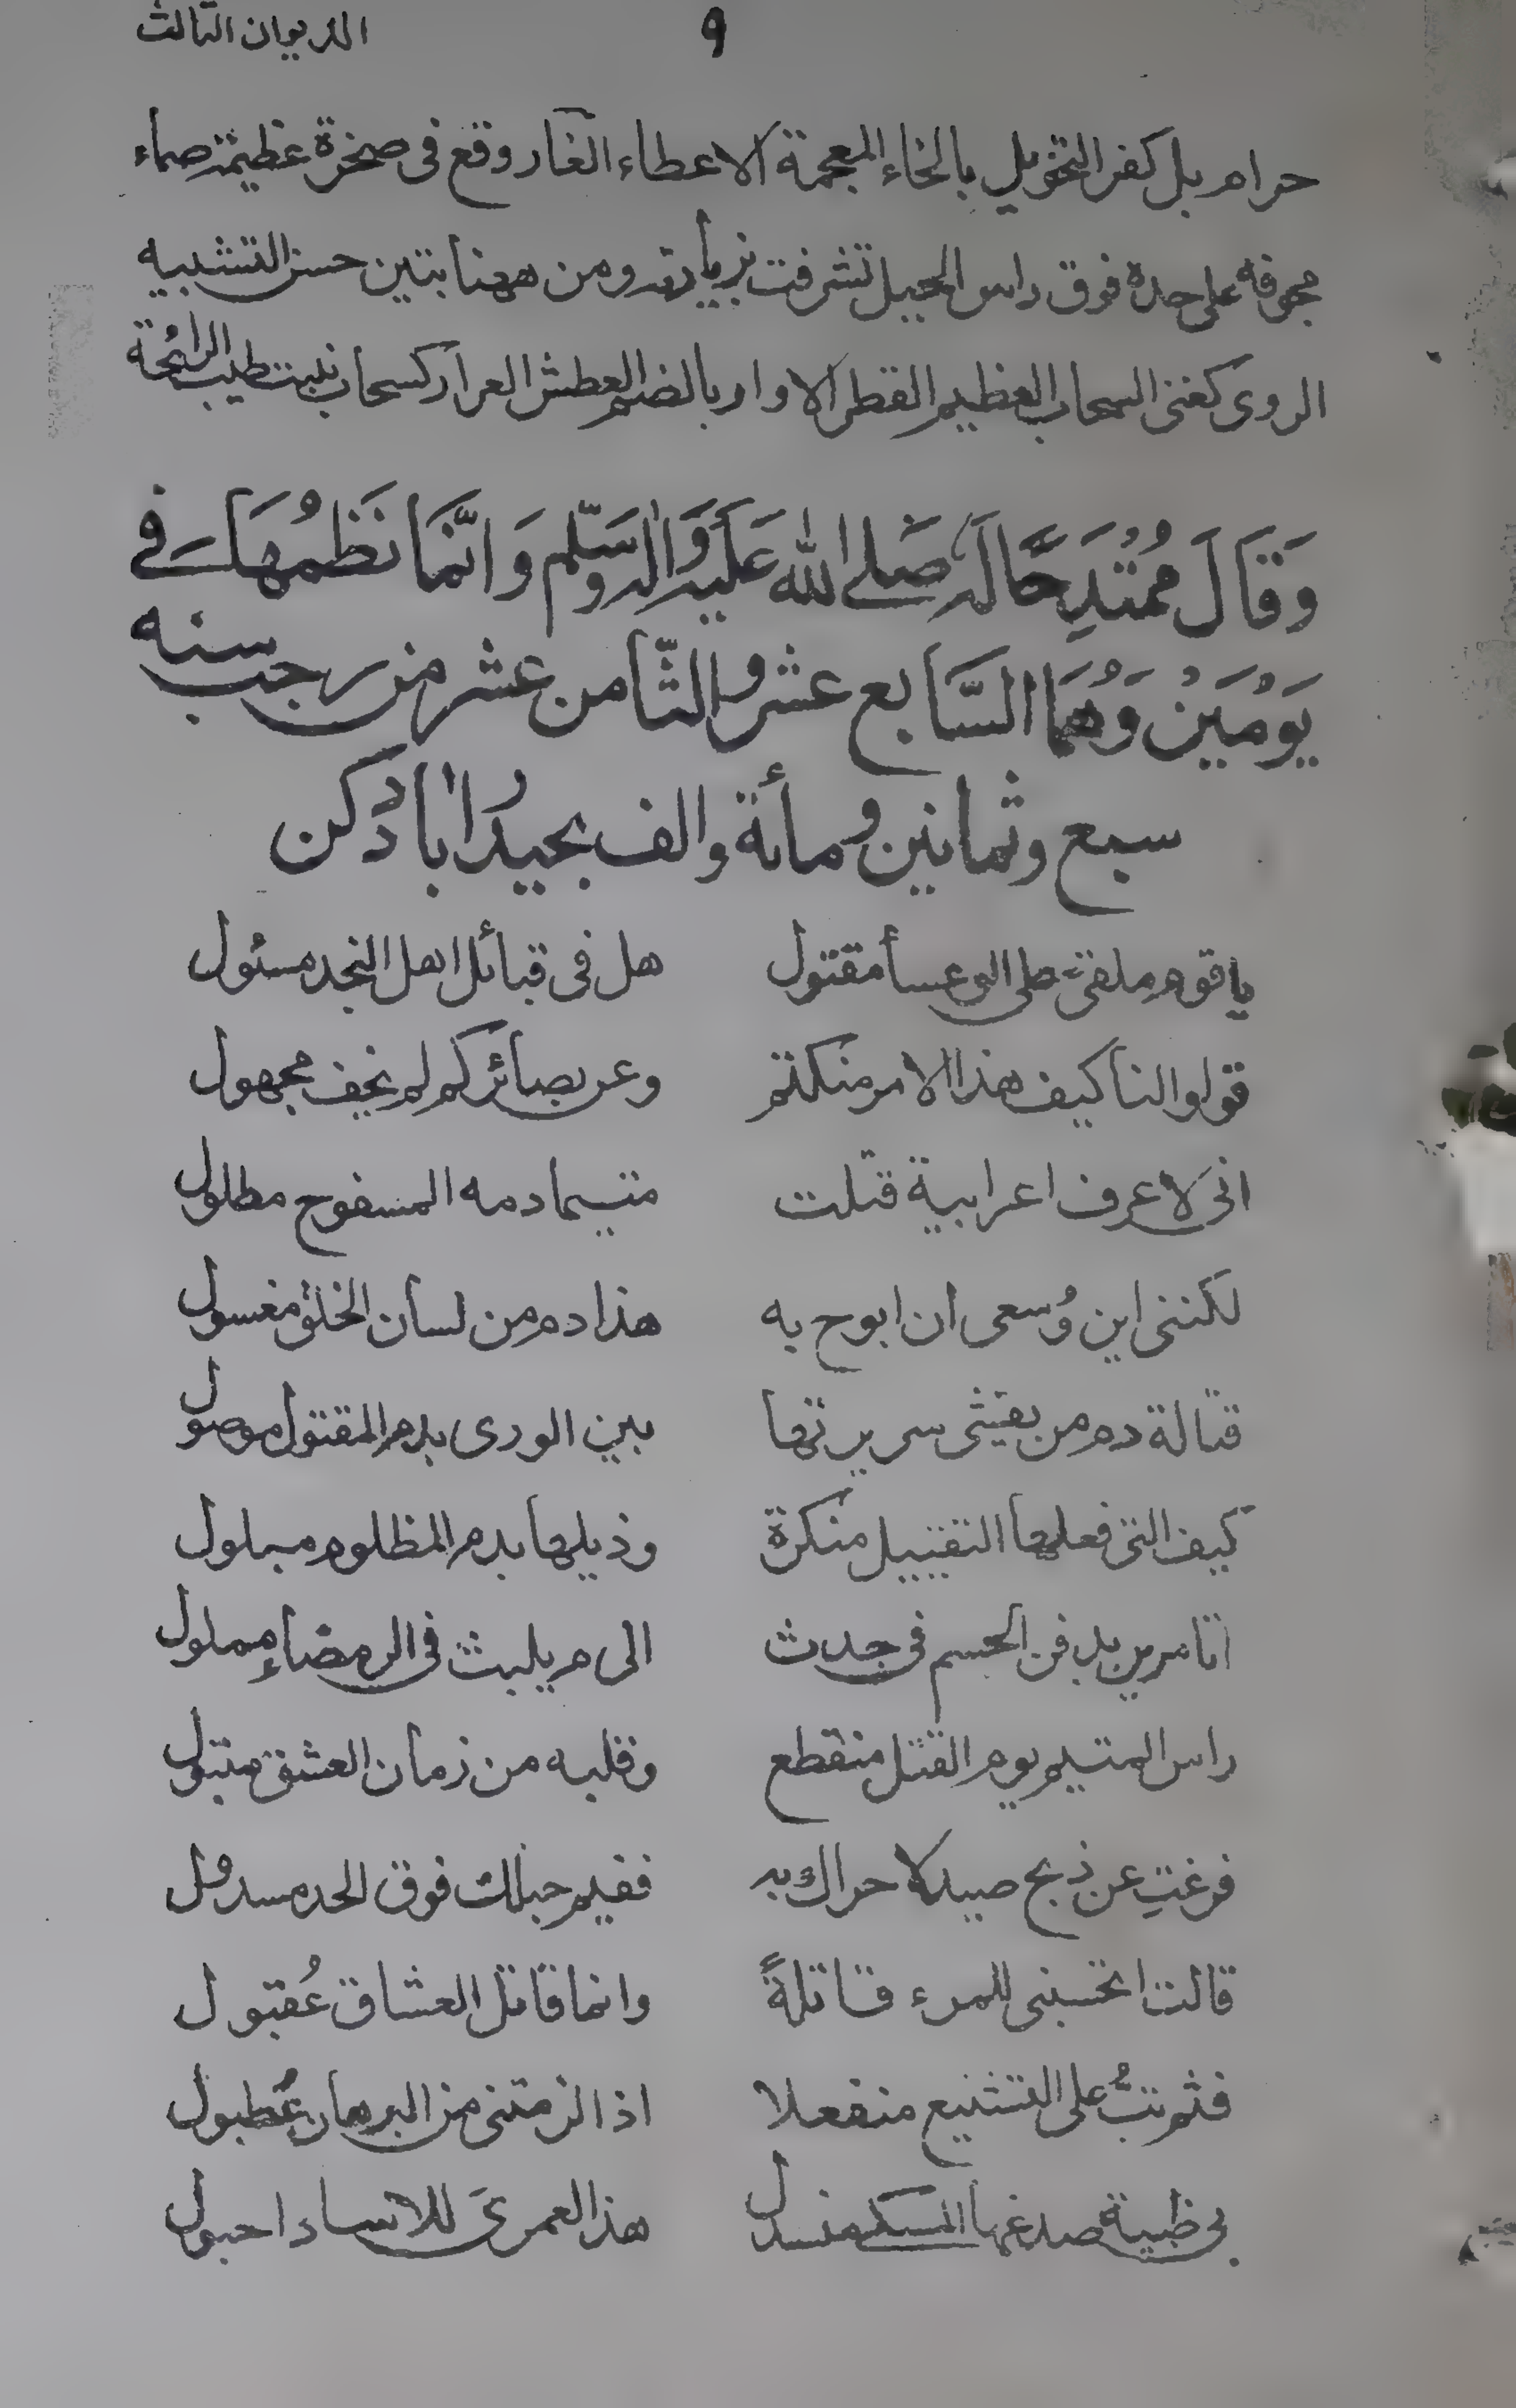 الديوان الثالث
٩
حرام بل كفر التخويل بالخاء المعجمة الاعطاء الغار وقع فى صخرة عظيمة صماء
مجوفة على حدة فوق راس الجبل تشرفت بزيارته ومن ههنا بتين حسن التشبيه
الروى كغنى السحاب العظيم القطر الاوار بالضم العطش العرار كسحاب نبت طيب الرائحة
وَقَالَ مُمْتَدِحًا لَهُ صَلى الله عَلَيه وَاٰله وَسَلّم وَانَّمَا نَظمُهَا فى
يَوْمَيْنْ وَهُمَا السَّابع عشر والثّامن عشر من رجب سنه
سبع وثمانين ومأئة والف بحيدُراٰباد دكن
يا قوم ملقى على الوعسأ مقتول هل فى قبائل اهل النجد مسئول
قولوا لنا كيف هذا الامر منكتم وعن بصائركم لم يخف مجهول
انى لاعرف اعرابية قتلت متيما دمه المسفوح مطلول
لكننى اين وُسعى ان ابوح به هذا دم من لسان الخلق مغسول
قتالة دم من يفشى سريرتها بين الورى بدم المقتول موصول
كيف التى فعلها التقتيل منكرة وذيلها بدم المظلوم مبلول
اتامرين بدفن الجسم فى جدث الى م يلبث فى الرمضاء مملول
راس المتيم يوم القتل منقطع وقلبه من زمان العشق متبول
فرغتِ عن ذبح صيد لا حراك به ففيم حبلك فوق الخد مسدول
قالت اتحسبنى للمرء قاتلةً وانما قاتل العشاق عُقبول
فثم تبتُ على التشنيع منفعلا اذ الزمتنى من البرهان عُطبول
بى ظبية صدغها المسكى منسدل هذا لعمرىَ للاساد احبول